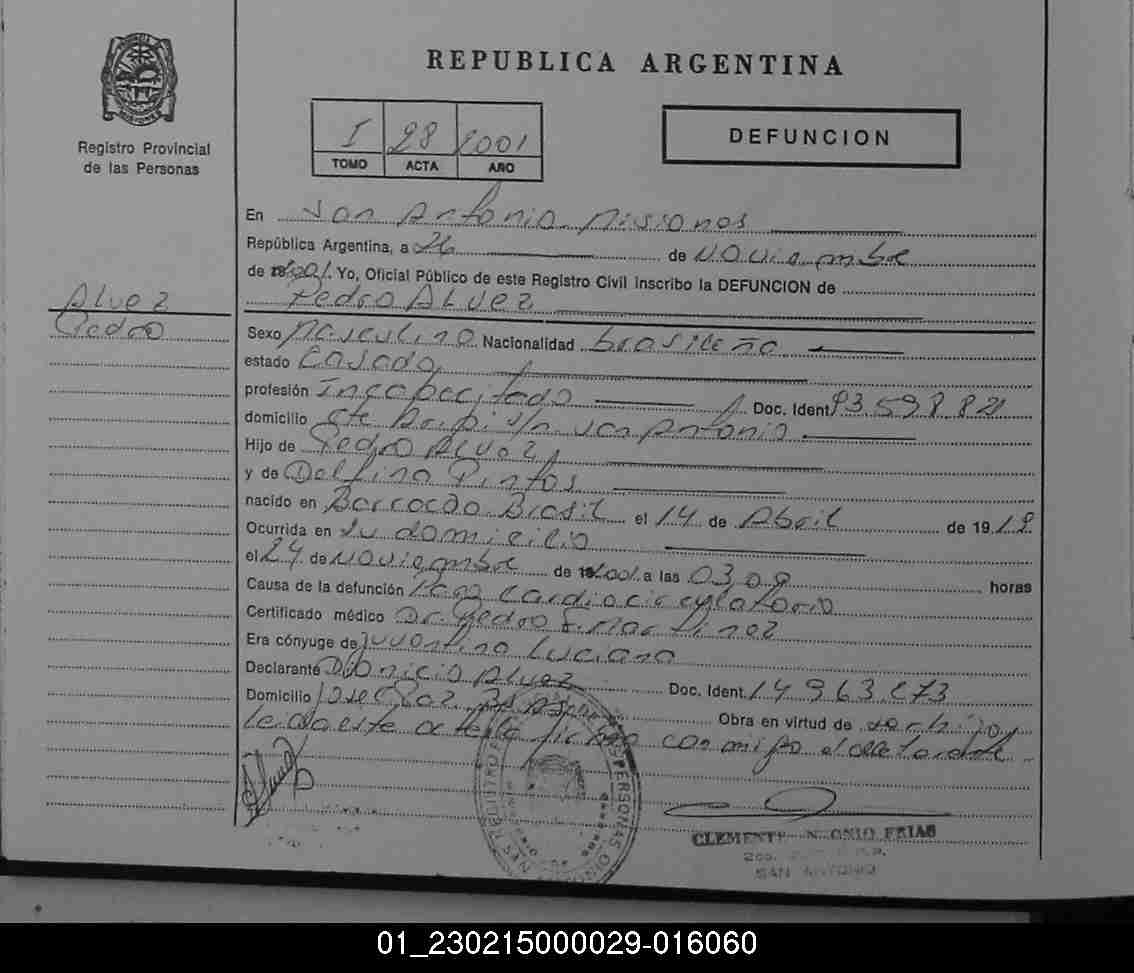 REPUBLICA ARGENTINA
Registro Provincial
de las Personas
I 28 2001
TOMO ACTA AÑO
DEFUNCION
En San Antonio Misiones
República Argentina, a 26 de Noviembre
de 2001. Yo, Oficial Público de este Registro Civil inscribo la DEFUNCION de
Pedro ALvez
ALvez
Pedro
Sexo Masculino Nacionalidad brasileña
estado Casado
profesión Incapacitado Doc. Ident 93 598 821
domicilio s/n San Antonio
Hijo de Pedro ALvez
y de Delfina Pintos
nacido en Barracão Brasil el 14 de Abril de 19 19
Ocurrida en Su domicilio
el 24 de Noviembre de 2001 a las 03,09 horas
Causa de la defunción Paro Cardiocirculatorio
Certificado médico Dr. Pedro F. Martinez
Era cónyuge de Juventina Luciana
Declarante Dionicio ALvez Doc. Ident. 14 963 273
Domicilio Jose Paz Obra en virtud de ser hijo
Leida este acta la firma conmigo el declarante
REGISTRO PERSONAS
CLEMENTE FRIAS
SAN ANTONIO
01_230215000029-016060